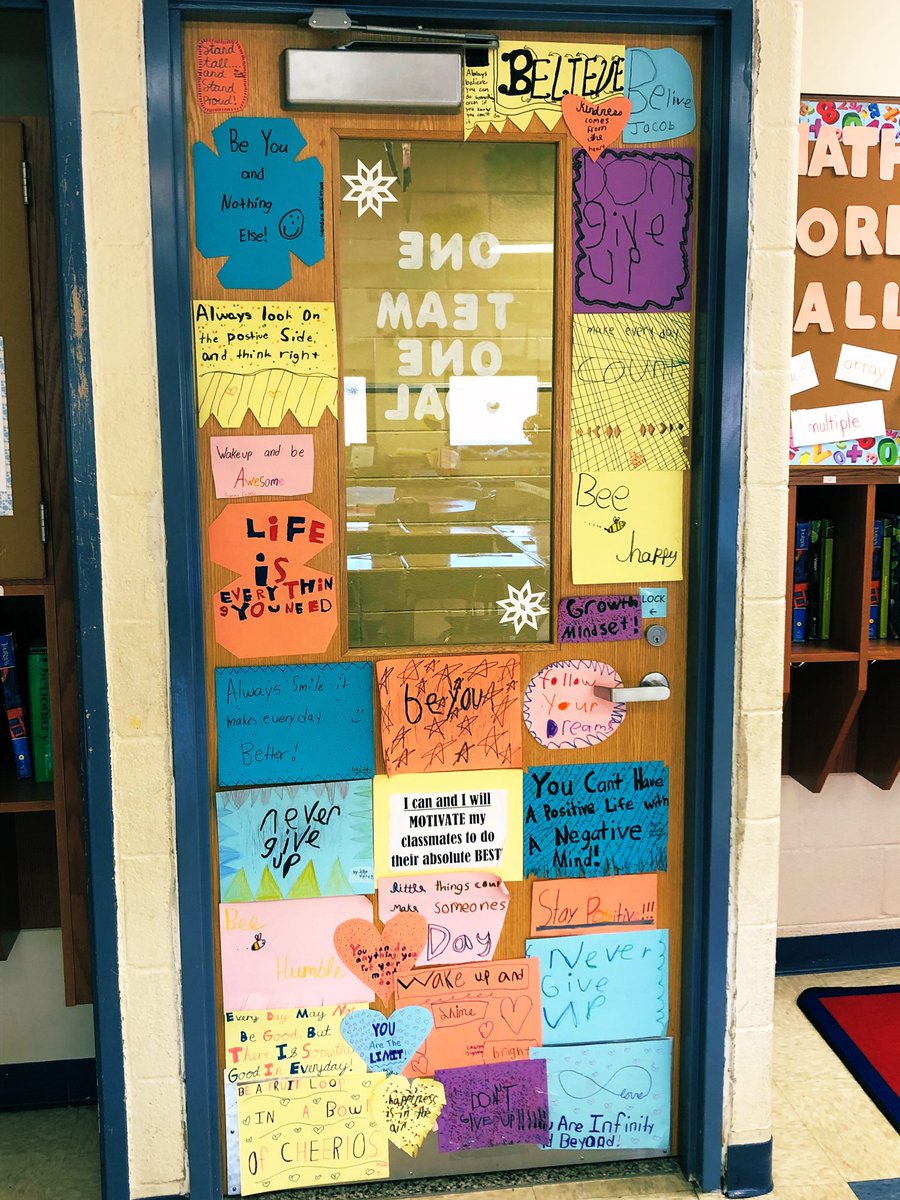 Stand
tall....
and
Stand
Proud!
Always
believe
you can
do
even if
you
can't
BELIEVE
Belive
Jacob
Kindness
comes
from the
heart
Be You
and
Nothing
Else!
Dont
give
up
ONE
TEAM
ONE
Always look On
the postive Side,
and think right
make every day
Count
Wakeup and be
Awesome
Bee
happy
LiFE
iS
EVERYTHIN
gYOUNEED
Growth
Mindset!
LOCK
←
Always Smile it
makes everyday
Better!
be you
follow
Your
Dreams
never
give
up
I can and I will
MOTIVATE my
classmates to do
their absolute BEST
You Cant Have
A Positive Life with
A Negative
Mind!!
little things coul
Make Someones
Day
Stay Positiv!!!
Bee
Humble
You can do
anything you
put your
mind
Wake up and
Shine
bright
Never
Give
UP
Every Day May Not
Be Good. But
There Is Someth
Good In Everyday!
YOU
Are The
LIMIT!
BE A FRUIT LOOP
IN A BOWl
Of CHEERIOS
happiness
is in the
air
DON'T
GIVE UP!!!!!
love
ou Are Infinity
nd Beyond!
MATH
ORD
ALL
array
multiple